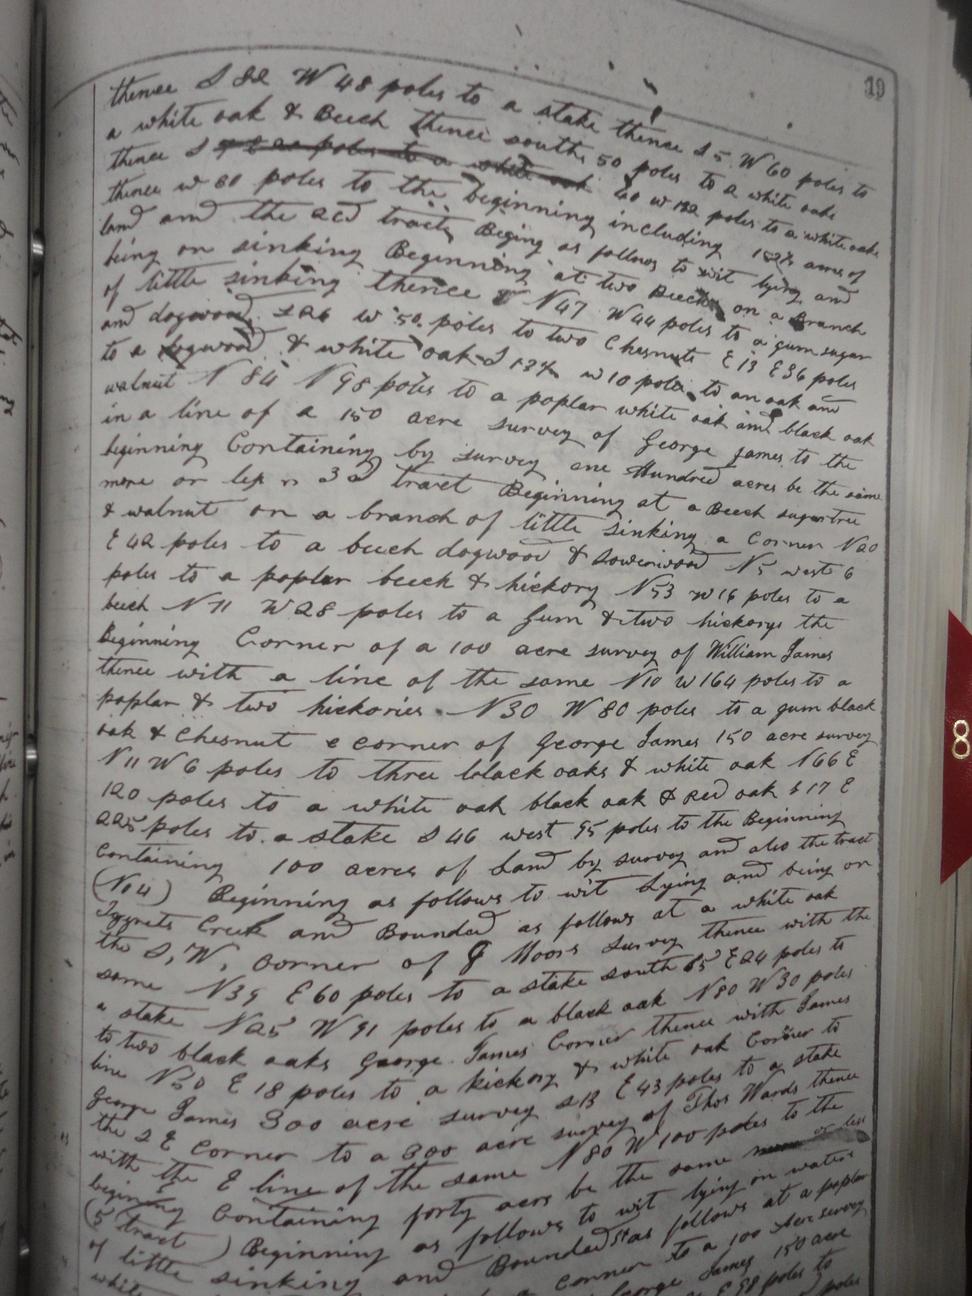 19
thence S 82 W 48 poles to a stake thence S 5 W 60 poles to
a white oak & Beech thence south 50 poles to a white oak
thence S poles to a white oak 60 w 122 poles to a white oak
thence w 80 poles to the beginning including acres of
land and the 2cd tract Begining as follows to wit lying and
being on sinking Beginning at two Beech on a Branch
of little sinking thence N47 W44 poles to a gum sugar
and dogwood S26 w 50 poles to two Chesnuts E 13 E36 poles
to a dogwood & white oak S w 10 poles to an oak and
walnut N 84 N98 poles to a poplar white oak and black oak
in a line of a 150 acre survey of George James to the
beginning Containing by survey one Hundred acres be the same
more or less 3d tract Beginning at a Beech sugartree
& walnut on a branch of little sinking a Corner N20
E 42 poles to a beech dogwood & Sowerwood N5 west 6
poles to a poplar beech & hickory N53 w16 poles to a
beech N 11 W28 poles to a Gum & two hickorys the
Beginning Corner of a 100 acre survey of William James
thence with a line of the same N10 w164 poles to a
poplar & two hickories N30 W 80 poles to a gum black
oak & Chesnut corner of George James 150 acre survey
N11 W6 poles to three black oaks & white oak N66 E
120 poles to a white oak black oak & Red oak S 17 E
225 poles to a stake S 46 west 95 poles to the Beginning
Containing 100 acres of Land by survey and also the tract
(No 4) Beginning as follows to wit Lying and being on
Tygerts Creek and Bounded as follows at a white oak
the S, W, corner of Moors survey thence with the
same N39 E60 poles to a stake south 65 E24 poles to
a stake N25 W 91 poles to a black oak N80 W30 poles
to two black oaks George James Corner thence with James
line N50 E 18 poles to a hickory & white oak Corner to
George James 300 acre survey S13 E43 poles to a stake
the S E Corner to a 300 acre survey of Thos Wards thence
with the E line of the same N80 W 100 poles to the
begining Containing forty acrs be the same more or less
(5 tract) Beginning as follows to wit lying on waters
of little sinking and Bounded as follows at a poplar
white corner to a 100 acre survey
George James 150 acre
E 98 poles to
poles
8